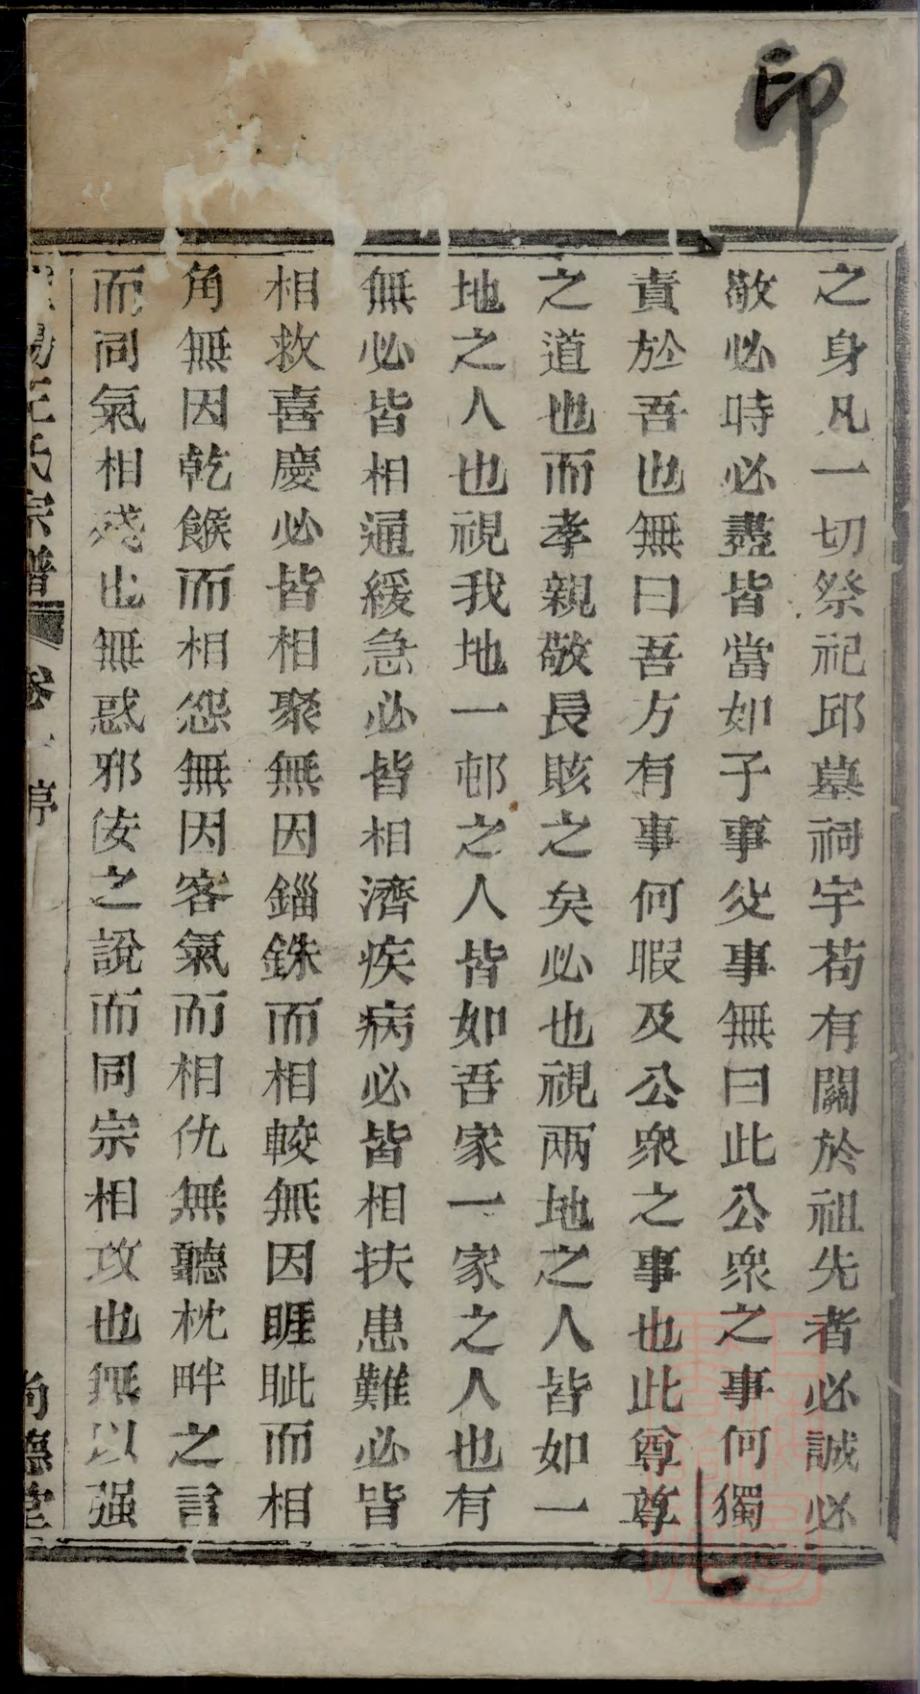 印
之身凡一切祭祀邱墓祠宇苟有關於祖先者必誠必
敬必時必盡皆當如子事父事無曰此公衆之事何獨
責於吾也無曰吾方有事何暇及公衆之事也此尊尊
之道也而孝親敬長賅之矣必也視兩地之人皆如一
地之人也視我地一邨之人皆如吾家一家之人也有
無必皆相通緩急必皆相濟疾病必皆相扶患難必皆
相救喜慶必皆相聚無因錙銖而相較無因睚眦而相
角無因乾餱而相怨無因客氣而相仇無聽枕畔之言
而同氣相殘也無惑邪侫之說而同宗相攻也無以强
陽王氏宗譜 卷一 尚德堂